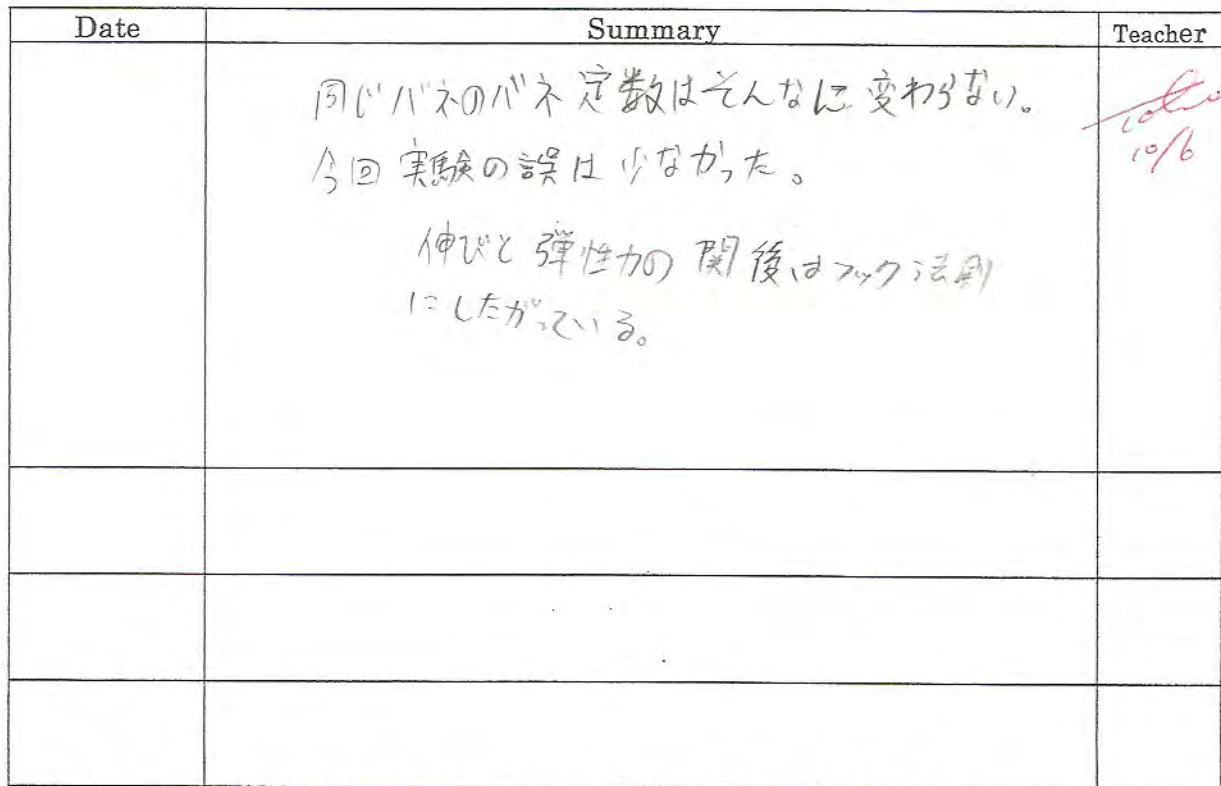 Date Summary Teacher
同じバネのバネ定数はそんなに変わらない。
10/6
今回実験の誤は少なかった。
伸びと弾性力の関後はフック法則
にしたがっている。